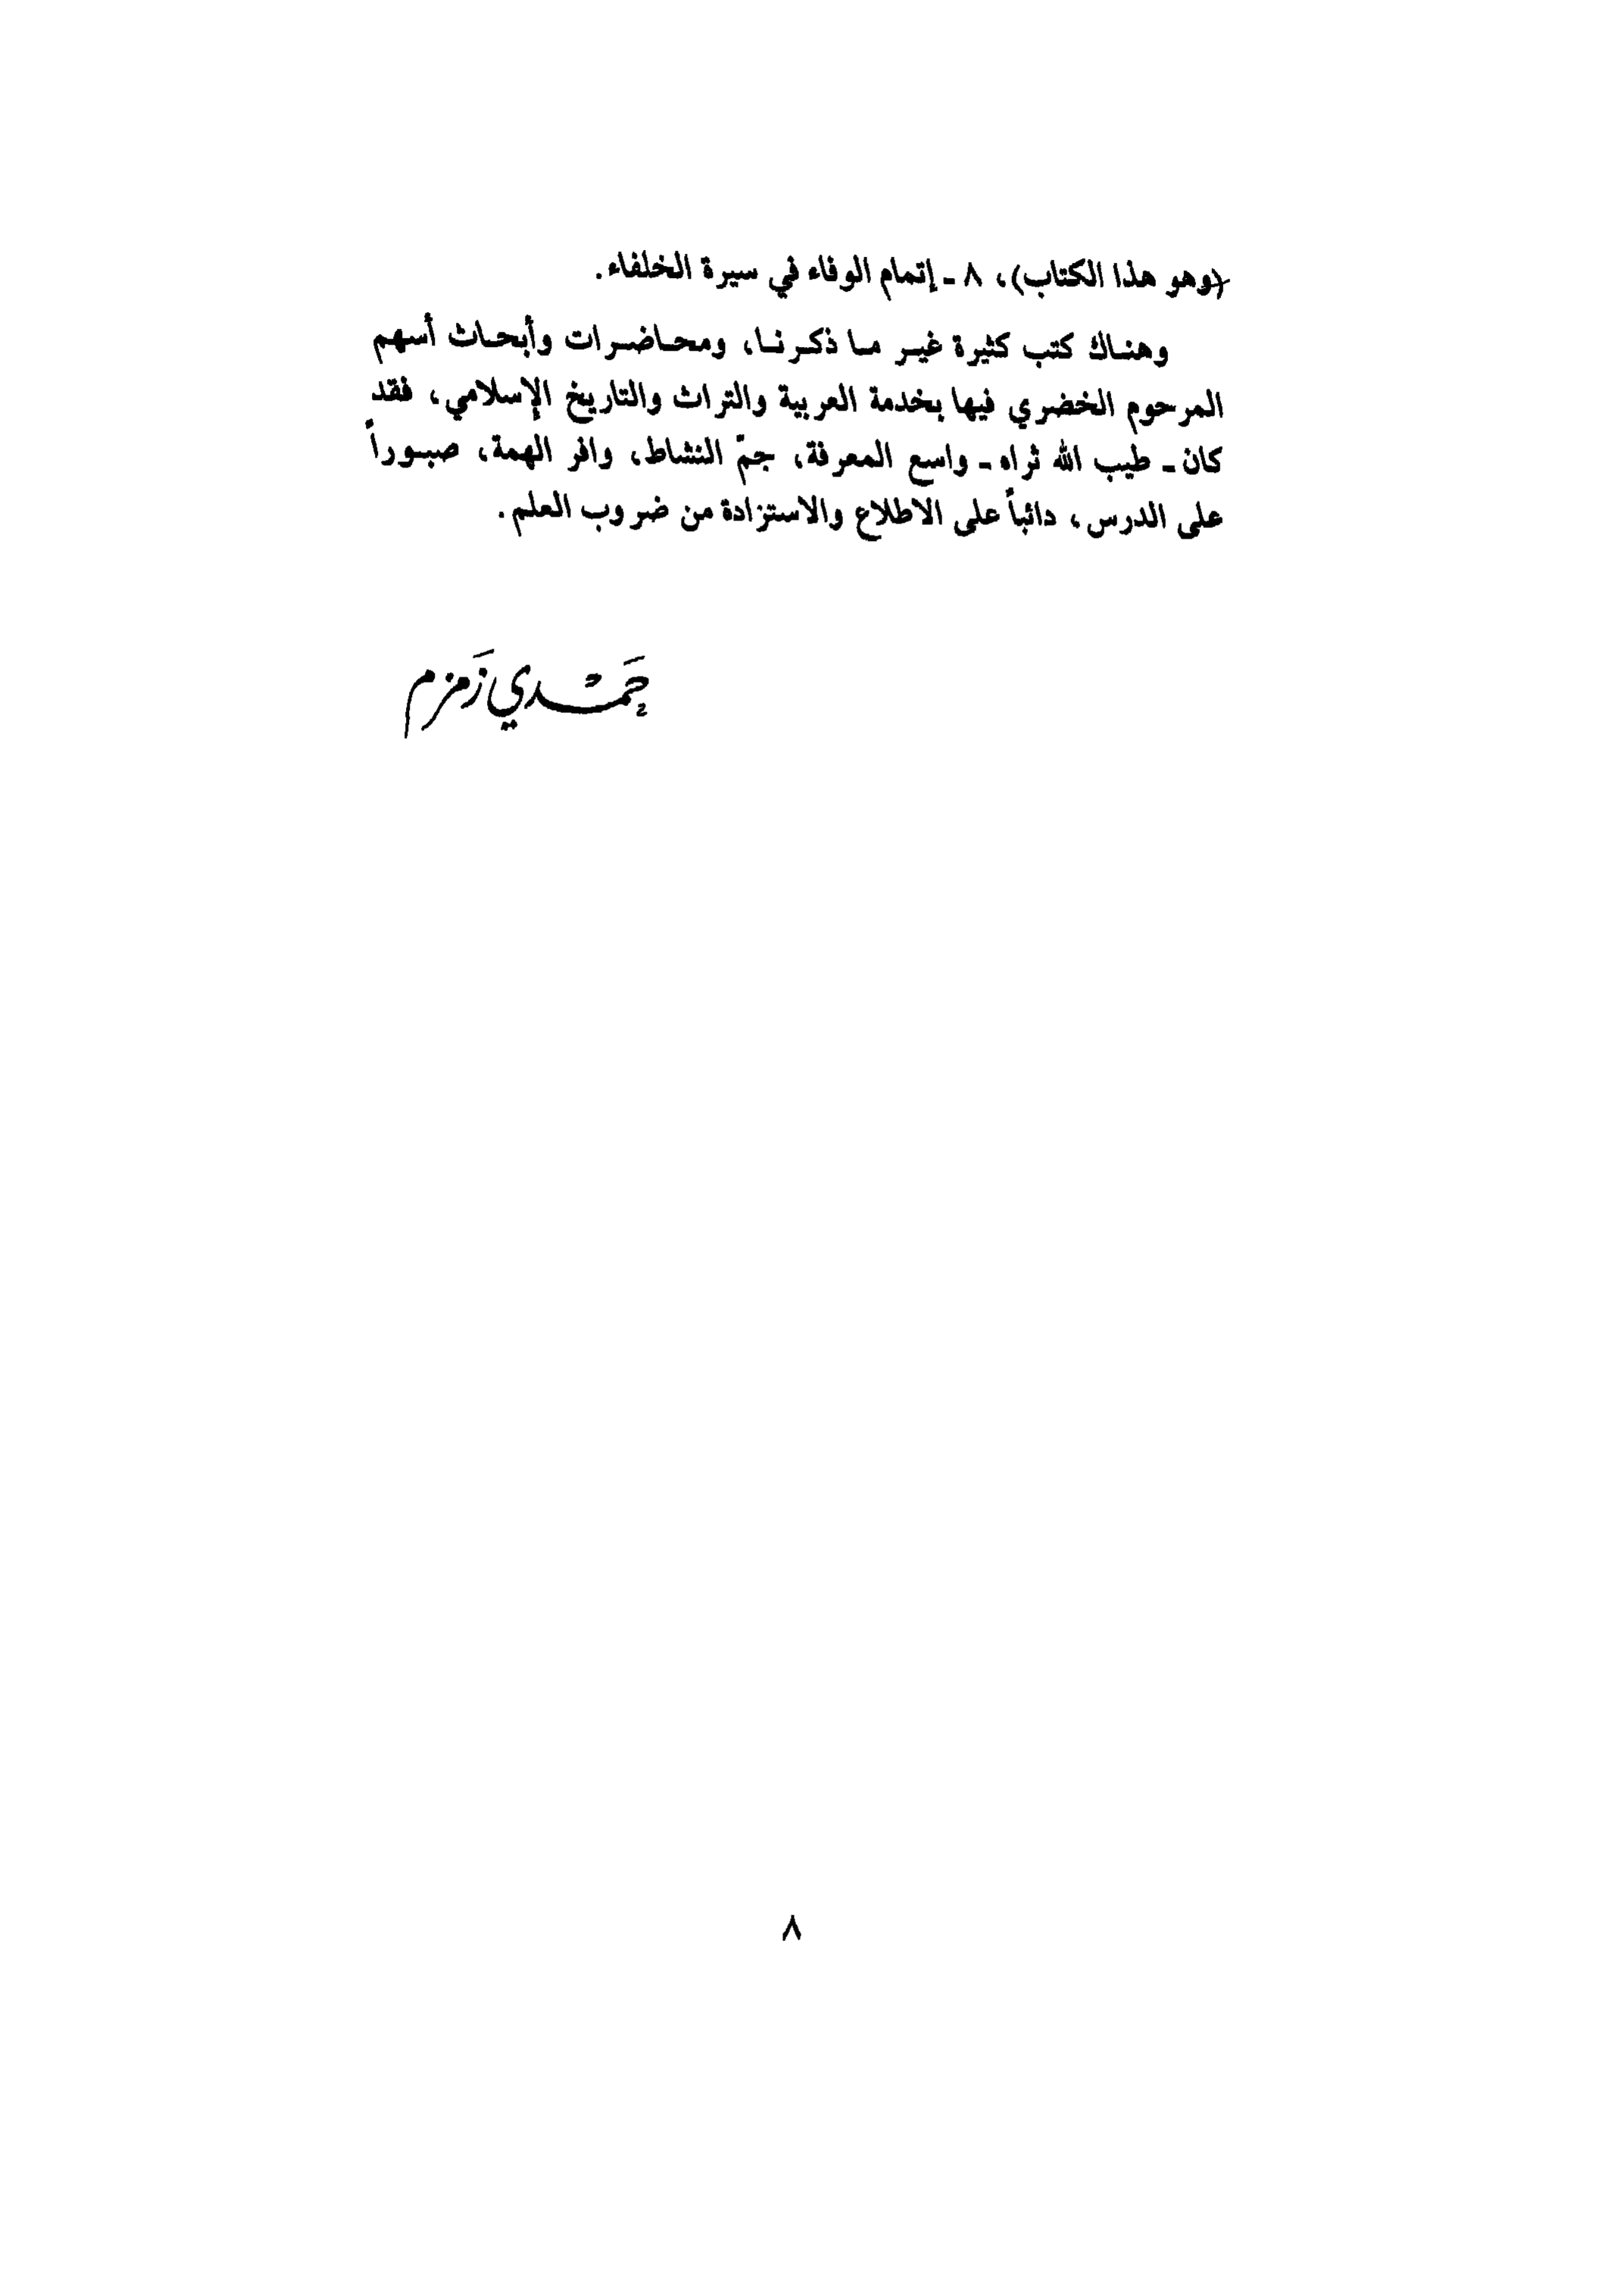 (وهو هذا الكتاب)، ٨ ـ إتمام الوفاء في سيرة الخلفاء.
وهناك كتب كثيرة غير ما ذكرنا، ومحاضرات وأبحاث أسهم
المرحوم الخضري فيها بخدمة العربية والتراث والتاريخ الإسلامي، فقد
كان ـ طيب الله ثراه ـ واسع المعرفة، جمّ النشاط، وافر الهمة، صبوراً
على الدرس، دائباً على الاطلاع والاستزادة من ضروب العلم.
حَمْدي زَمزم
٨